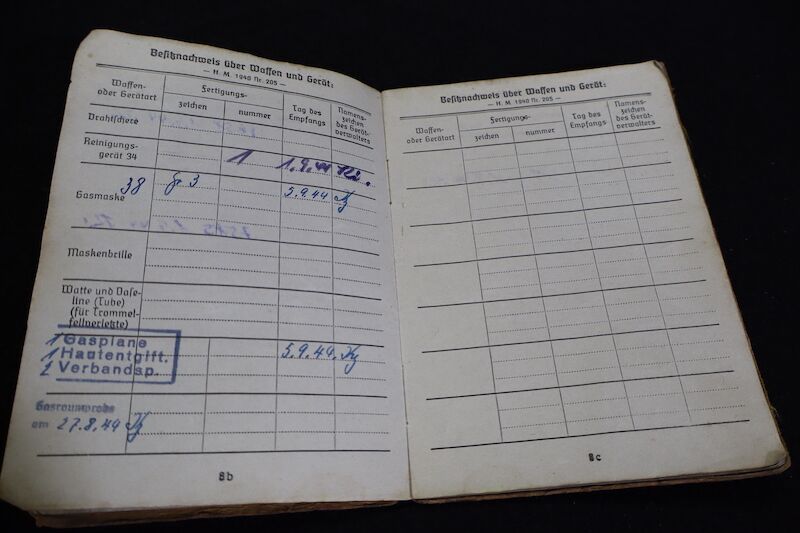 Besitznachweis über Waffen und Gerät:
— H. M. 1940 Nr. 205 —
Waffen-
oder Gerätart
Fertigungs-
zeichen
nummer
Tag des
Empfangs
Namens-
zeichen
des Gerät-
verwalters
Drahtschere
Reinigungs-
gerät 34
1 1.9.44
Gasmaske
38 5.9.44
Maskenbrille
Watte und Vase-
line (Tube)
(für Trommel-
fellverletzte)
1 Gasplane
1 Hautentgift.
2 Verbandsp.
5.9.44.
Gasraumprobe
am 27.8.44
8b
Besitznachweis über Waffen und Gerät:
— H. M. 1940 Nr. 205 —
Waffen-
oder Gerätart
Fertigungs-
zeichen
nummer
Tag des
Empfangs
Namens-
zeichen
des Gerät-
verwalters
8c